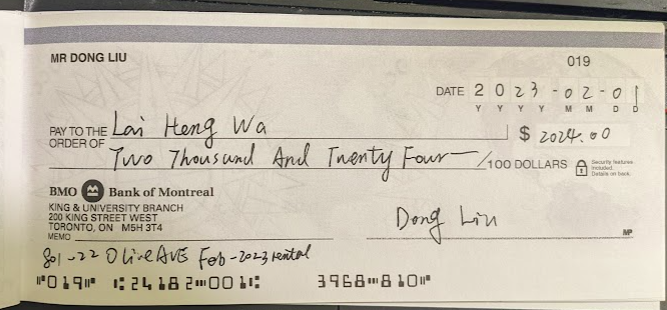 MR DONG LIU
019
DATE 2023-02-01
Y Y Y Y M M D D
PAY TO THE ORDER OF Lai Heng Wa $ 2024.00
Two Thousand And Twenty Four /100 DOLLARS
Security features included. Details on back.
BMO Bank of Montreal
KING & UNIVERSITY BRANCH
200 KING STREET WEST
TORONTO, ON M5H 3T4
Dong Liu
MP
MEMO 801-22 Olive AVE Feb-2023 rental
⑈019⑈ ⑆24182⑉001⑆ 3968⑉810⑈